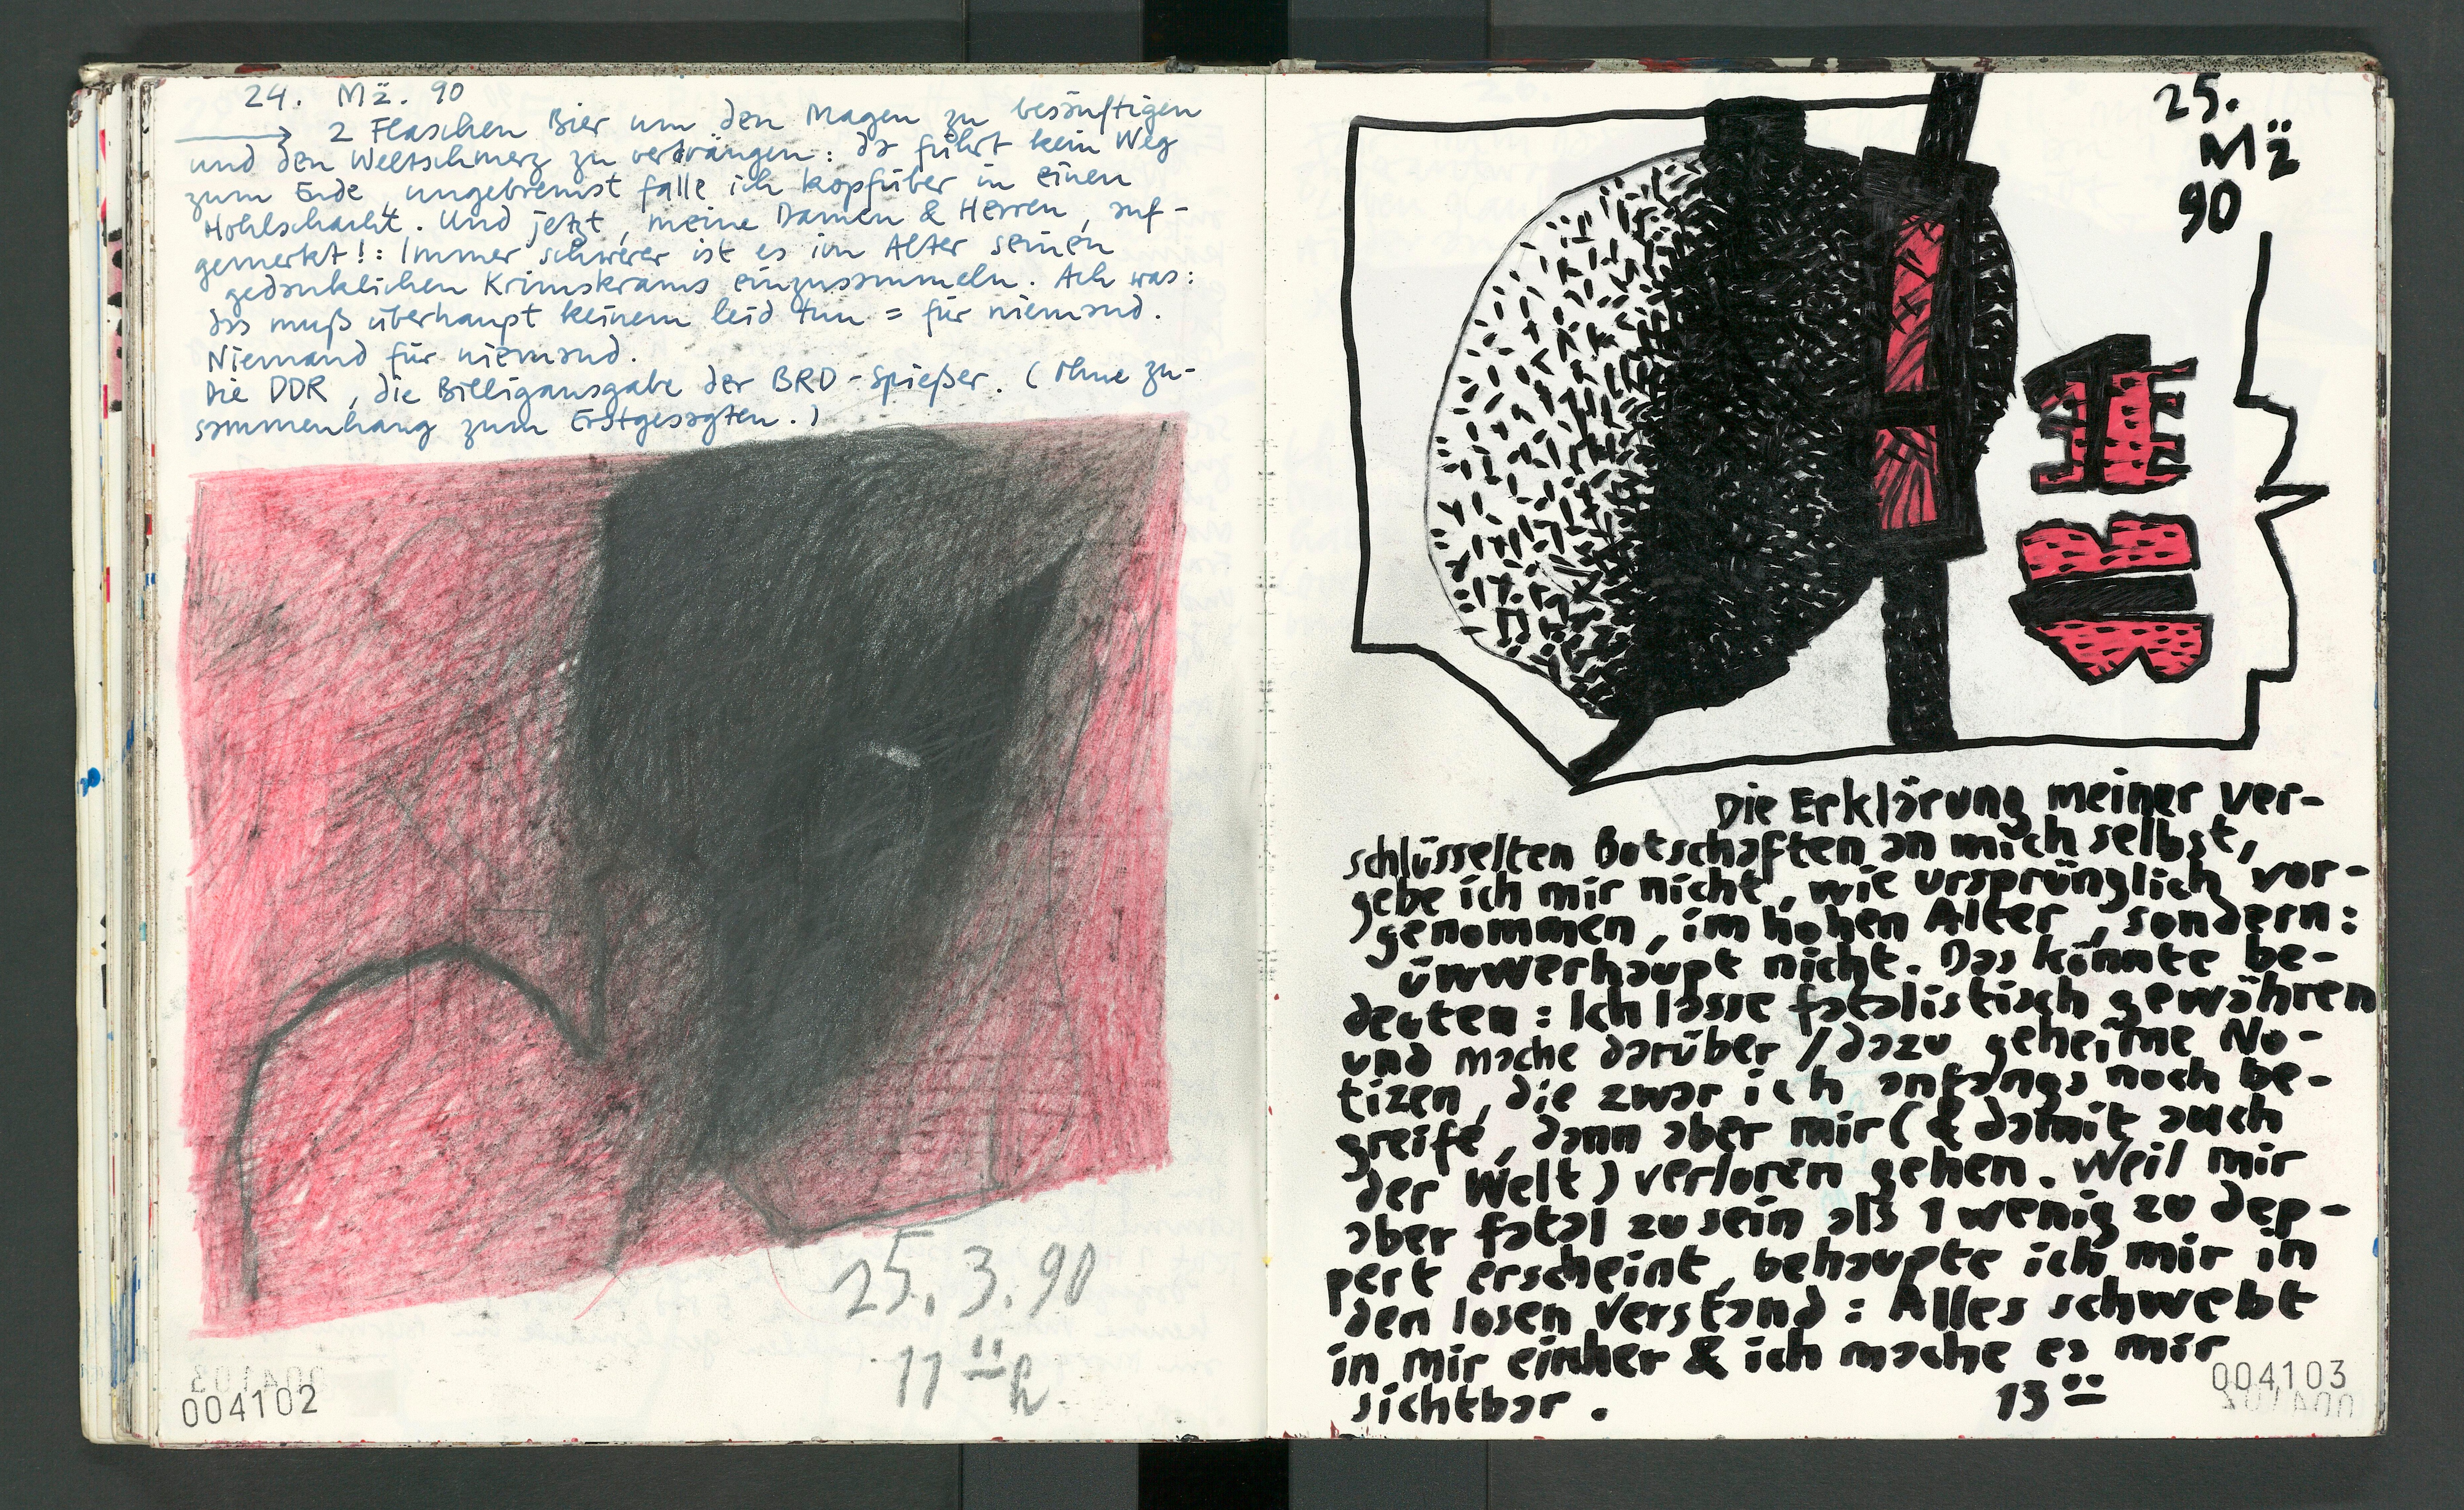 24. Mä. 90
→ 2 Flaschen Bier um den Magen zu besänftigen
und den Weltschmerz zu verdrängen: da führt kein Weg
zum Ende, ungebremst falle ich kopfüber in einen
Hohlschacht. Und jetzt, meine Damen & Herren, auf-
gemerkt!: Immer schwerer ist es im Alter seinen
gedanklichen Krimskrams einzusammeln. Ach was:
das muß überhaupt keinem leid tun = für niemand.
Niemand für niemand.
Die DDR, die Billigausgabe der BRD-Spießer. (Ohne zu-
sammenhang zum Erstgesagten.)
25.3.90
11 00 h
004102
25.
Mä
90
Die Erklärung meiner ver-
schlüsselten Botschaften an mich selbst,
gebe ich mir nicht, wie ursprünglich vor-
genommen, im hohen Alter, sondern:
üwwerhaupt nicht. Das könnte be-
deuten: Ich lasse fatalistisch gewähren
und mache darüber / dazu geheime No-
tizen, die zwar ich anfangs noch be-
greife, dann aber mir (& damit auch
der Welt) verloren gehen. Weil mir
aber fatal zu sein als 1 wenig zu dep-
pert erscheint, behaupte ich mir in
den losen Verstand: Alles schwebt
in mir einher & ich mache es mir
sichtbar.
13 00
004103